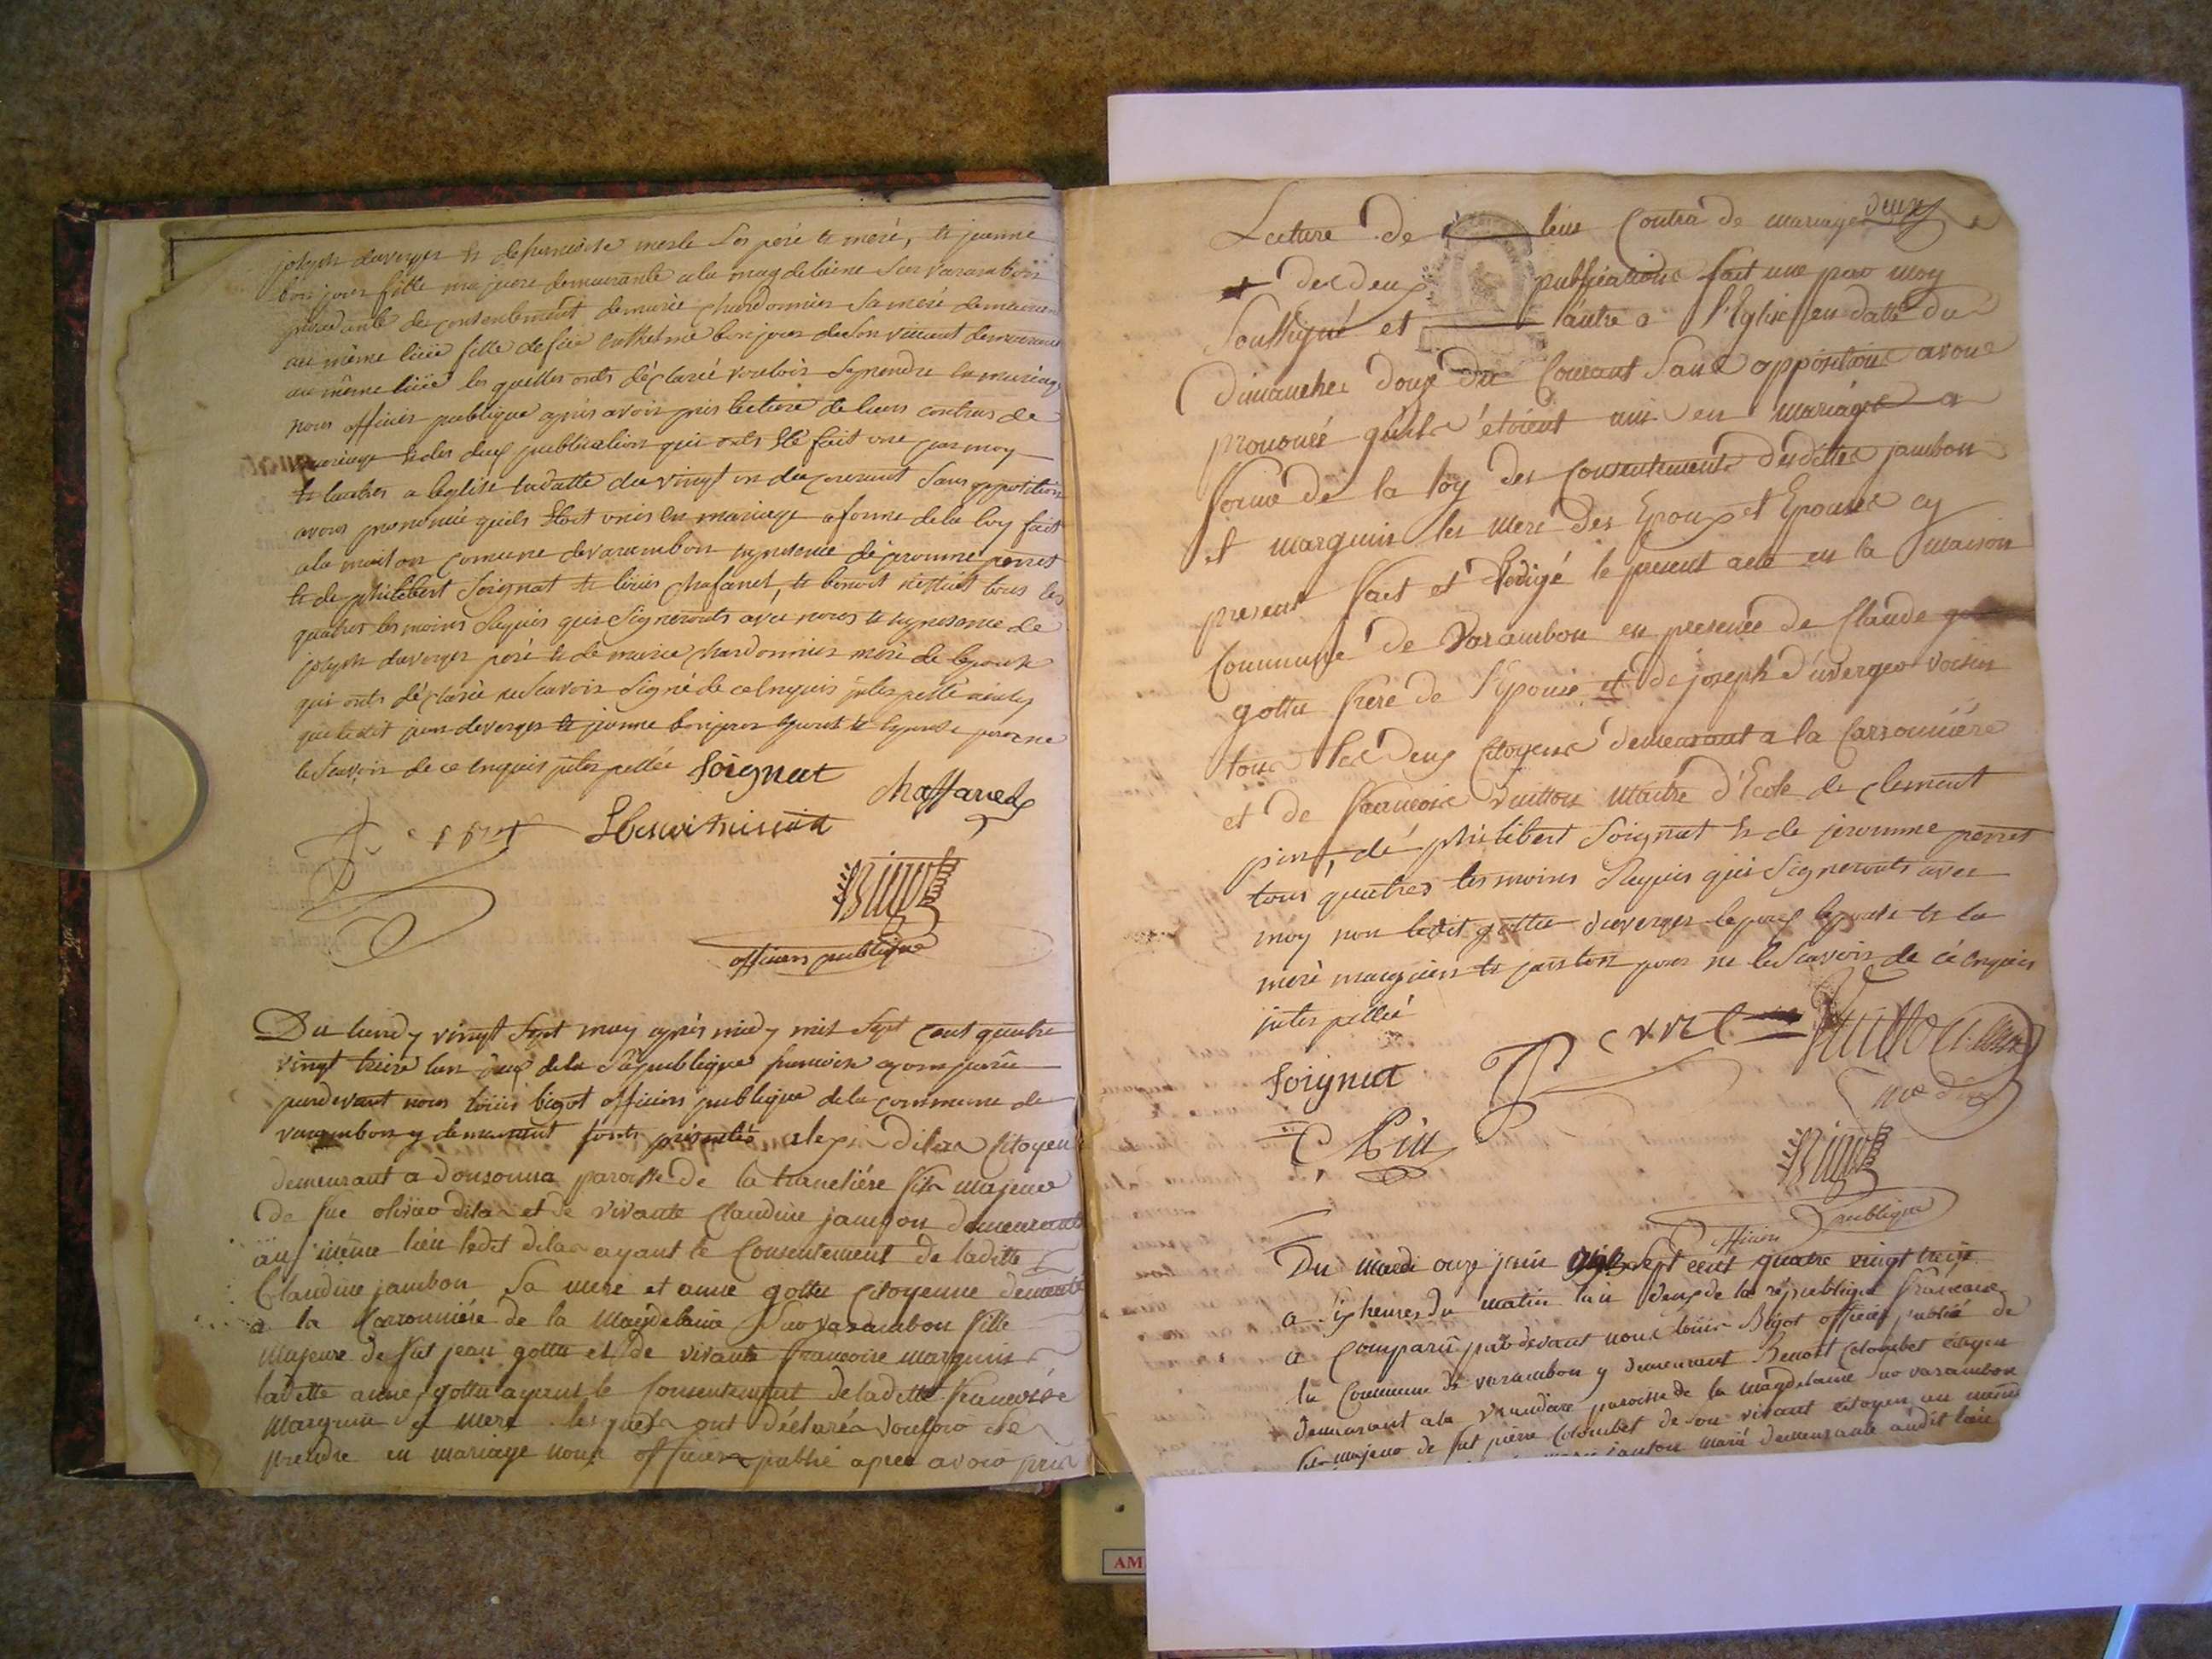 joseph duverger & de francoise merle ses peré & meré, & jeanne
bonjour fille majeure demeurante a la magdeleine sur varambon
du consentement de marie chardonnier sa meré demeurant
au même liüe fille de feu anthelme bonjour de son vivant demeurant
au même liüe les quelles onts déclaréé vouloir se prendre en mariage
nous officier publique aprés avoir pris lecture de leurs contras de
mariage & des deux publication qui onts été fait une par moy
& lautres a leglise en datte du vingt un du courant sans opposition
avons prononcée quils étoit unis en mariage a forme de la loy fait
a la maison comune de varambon en presence de jeromme perret
& de philibert Soignat & louis chafanel, & benoit tous les
quatres tesmoins Requis qui Signeronts avec nous & en presence de
joseph duverger peré & de marie chardonnier meré de lepouse
qui onts déclarée ne Scavoir Signé de ce enquis jnterpellé ainsy
que ledit jean duverger & jeanne bonjour epoux & lepouse pour ne
le Scavoir de ce enquis jnterpellée Soignat
chaffanel
perret
Bigot
officier publique
Du lundy vingt Sept may aprés midy mil Sept cent quatre
vingt treize lan deux de la République francoise a comparu
pardevant nous loüis bigot officier publique de la commune de
varambon y demeurant sonts présentés dilas Citoyen
demeurant a Donsonna paroisse de la tranclière fils majeur
de fue olivier dilas et de vivante Claudine jambon demeurante
au même lieu ledit dilas ayant le Consentement de ladite
Claudine jambon Sa mere et anne gottu Citoyenne demeurante
a la Carronniére de la Magdelaine Sur varambon fille
majeure de fut jean gottu et de vivante francoise marguin
ladette anne gottu ayant le Consentement de ladette francoise
Marguin Sa mere lesquels ont déclarés vouloir se
prendre en mariage nous officier publié apres avoir pris
Lecture de leur Contra de mariage deux
des deux publications fait une par moy
Soussigné et l'autre a l'Eglise en datte du
Dimanches Douze du Courant Sans opposition avons
prononcé quils étoient uni en mariage a
forme de la loy des Consentements desdittes jambon
et marguin les mere des Epoux et Epouses cy
present fait et Rédigé le present acte en la maison
Commune de Varambon en presence de Claude
gottu frere de l'Epouse et de joseph duverger voisin
tous les deux Citoyens demeurant a la Carronniére
et de francois Vuitton maitre d'Ecole de clement
pin, de philibert Soignat & de jeromme perret
tous quatres tesmoins Requis qui Signeronts avec
moy non ledit gottu duverger lepoux lepouse & la
meré marguin & jambon pour ne le Scavoir de cé enquis
jnterpellée
Soignat
perret
Vuitton
C. Pin
Bigot
officier publique
Du mardi onze juin mil sept cent quatre vingt treize
a heures du matin l'an deux de la république francaise
a Comparü par devant nous loüis Bigot officier publié de
la Commune de varambon y demeurant Benoit Colombet citoyen
demeurant a la paroisse de la magdelaine sur varambon
fils majeur de fut pierre Colombet de son vivant citoyen au même
marié demeurante audit lieu